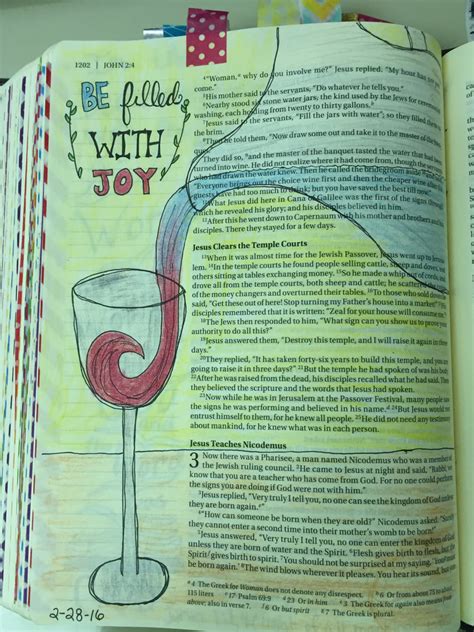 1202 | JOHN 2:4
BE filled
WITH
JOY
4"Woman, why do you involve me?" Jesus replied. "My hour has not yet
come."
5His mother said to the servants, "Do whatever he tells you."
6Nearby stood six stone water jars, the kind used by the Jews for ceremonial
washing, each holding from twenty to thirty gallons.b
7Jesus said to the servants, "Fill the jars with water"; so they filled them to
the brim.
8Then he told them, "Now draw some out and take it to the master of the
They did so, 9and the master of the banquet tasted the water that had been
turned into wine. He did not realize where it had come from, though the
who had drawn the water knew. Then he called the bridegroom aside
"Everyone brings out the choice wine first and then the cheaper wine after the
guests have had too much to drink; but you have saved the best till now."
11What Jesus did here in Cana of Galilee was the first of the signs through
which he revealed his glory; and his disciples believed in him.
12After this he went down to Capernaum with his mother and brothers and
disciples. There they stayed for a few days.
Jesus Clears the Temple Courts
13When it was almost time for the Jewish Passover, Jesus went up to
lem. 14In the temple courts he found people selling cattle, sheep and doves, and
others sitting at tables exchanging money. 15So he made a whip out of cords, and
drove all from the temple courts, both sheep and cattle; he scattered the coins
of the money changers and overturned their tables. 16To those who sold doves he
said, "Get these out of here! Stop turning my Father's house into a market!"
disciples remembered that it is written: "Zeal for your house will consume me."
18The Jews then responded to him, "What sign can you show us to prove your
authority to do all this?"
19Jesus answered them, "Destroy this temple, and I will raise it again in three
days."
20They replied, "It has taken forty-six years to build this temple, and you are
going to raise it in three days?" 21But the temple he had spoken of was his body.
22After he was raised from the dead, his disciples recalled what he had said. Then
they believed the scripture and the words that Jesus had spoken.
23Now while he was in Jerusalem at the Passover Festival, many people saw
the signs he was performing and believed in his name.d 24But Jesus would not
entrust himself to them, for he knew all people. 25He did not need any testimony
about mankind, for he knew what was in each person.
Jesus Teaches Nicodemus
3 Now there was a Pharisee, a man named Nicodemus who was a member of
the Jewish ruling council. 2He came to Jesus at night and said, "Rabbi, we
know that you are a teacher who has come from God. For no one could perform
the signs you are doing if God were not with him."
3Jesus replied, "Very truly I tell you, no one can see the kingdom of God unless
they are born again."
4"How can someone be born when they are old?" Nicodemus asked. "Surely
they cannot enter a second time into their mother's womb to be born!"
5Jesus answered, "Very truly I tell you, no one can enter the kingdom of God
unless they are born of water and the Spirit. 6Flesh gives birth to flesh, but the
Spirit gives birth to spirit. 7You should not be surprised at my saying, 'You
be born again.' 8The wind blows wherever it pleases. You hear its sound, but
a 4 The Greek for Woman does not denote any disrespect. b 6 Or from about 75 to
115 liters c 17 Psalm 69:9 d 23 Or in him e 3 The Greek for again also means from
above; also in verse 7. f 6 Or but spirit g 7 The Greek is plural.
2-28-16